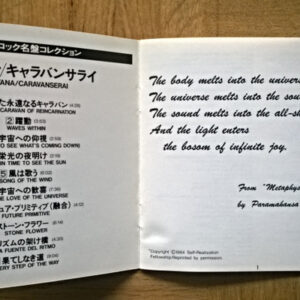 ロック名盤コレクション
/キャラバンサライ
ANA/CARAVANSERAI
た永遠なるキャラバン(4:28)
CARAVAN OF REINCARNATION
②躍動 (3:03)
WAVES WITHIN
宇宙への仰視
TO SEE WHAT'S COMING DOWN)
栄光の夜明け
IN TIME TO SEE THE SUN
⑤風は歌う
SONG OF THE WIND
宇宙への歓喜
THE LOVE OF THE UNIVERSE
ュア・プリミティブ(融合)
FUTURE PRIMITIVE
ストーン・フラワー
STONE FLOWER
リズムの架け橋
FUENTE DEL RITMO
果てしなき道
EVERY STEP OF THE WAY
The body melts into the univer
The universe melts into the sou
The sound melts into the all-sh
And the light enters
the bosom of infinite joy.
From "Metaphys
by Paramahansa
Copyright ©1964 Self-Realization
Fellowship. Reprinted by permission.
1